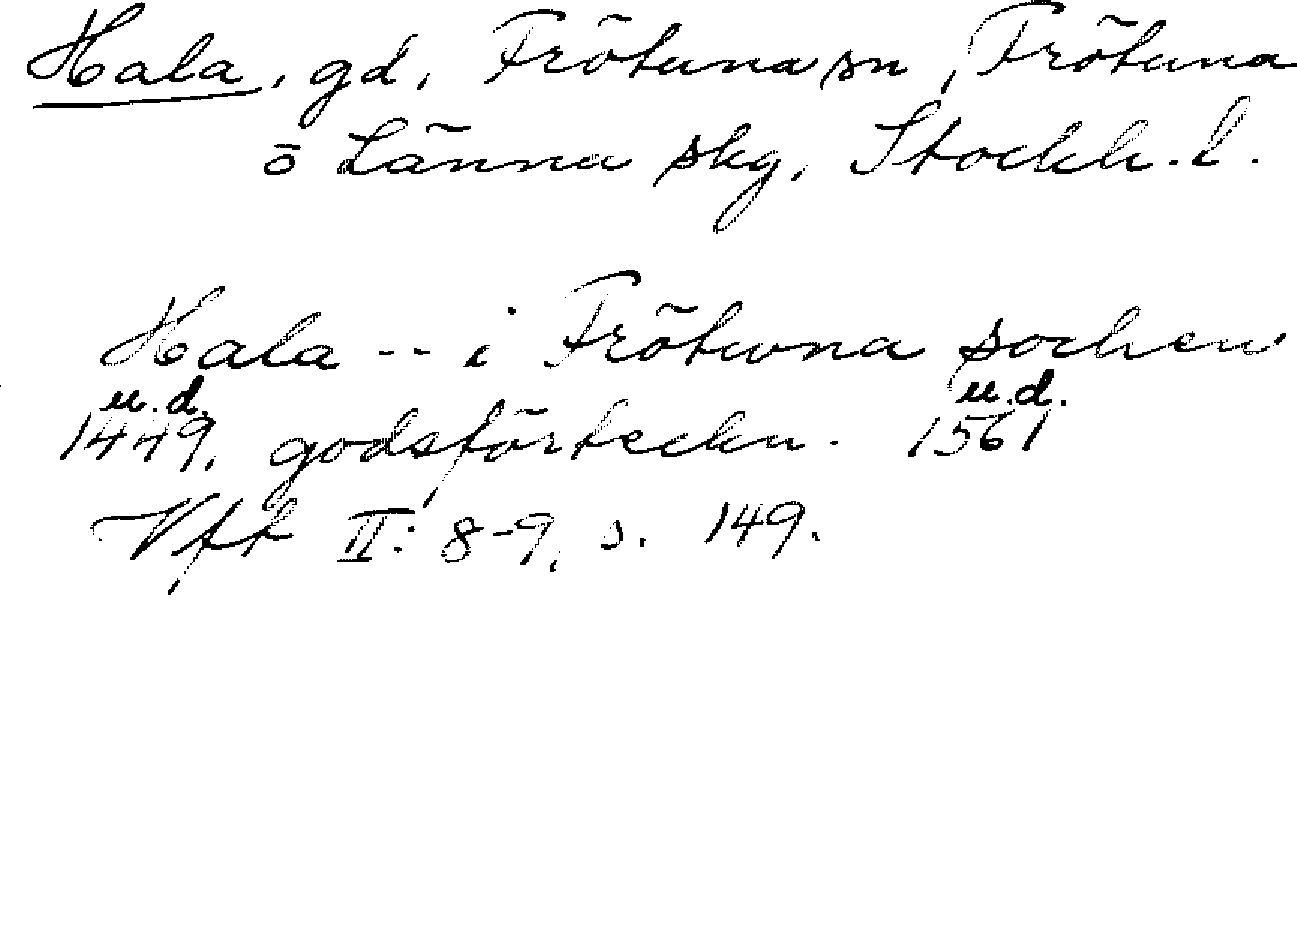 Hala, gd, Frötuna sn, Frötuna
o Länna skg, Stockh. l.
Hala -- i Frötuna socken
u.d. u.d.
1449, godsförteckn. 1561
Vff II: 8-9, s. 149.